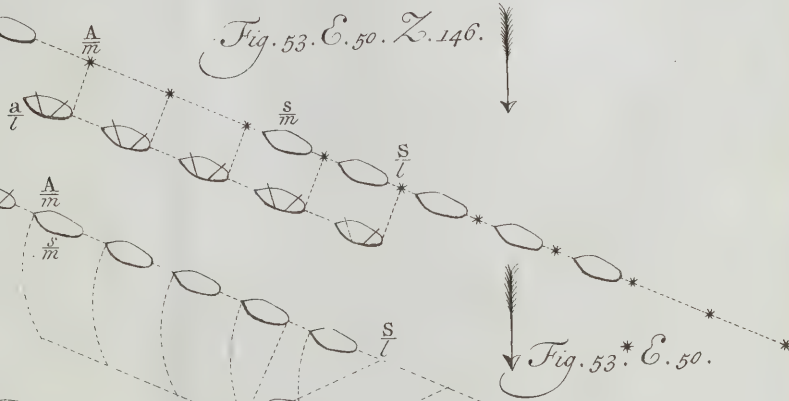 Fig. 53. E. 50. Z. 146.
A
m
a
l
s
m
S
l
A
m
s
m
S
l
Fig. 53.* E. 50.